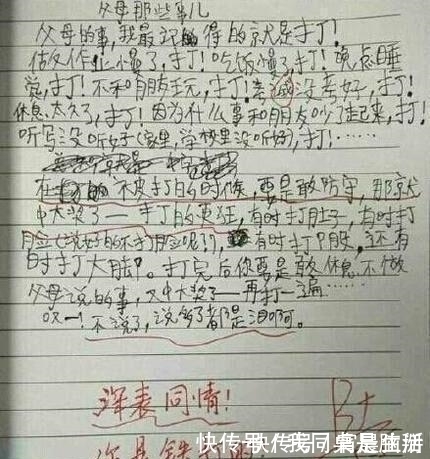 父母那些事儿
父母的事,我最记得的就是打!
做作业慢了,打!吃饭慢了,打!晚点睡
觉,打!不和朋友玩,打!考试没考好,打!
休息太久了,打!因为什么事和朋友吵了起来,打!
听写没听好(家里,学校里没听好),打!……
在 不皮打的时候,要是敢防守,那就
中大奖了——打的更狂,有时打肚子,有时打
脸(说好的不打脸呢?!),有时打P股,还有
时打大脑。打完后你要是敢休息不做
父母说的事,又中大奖了——再打一遍……
哎!不说了,说多了都是泪啊。
深表同情!
B+
快传号